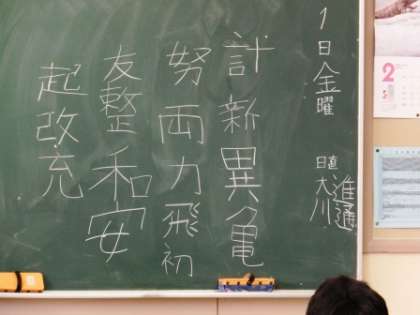 1日金曜
日直
大川
進通
計新異亀
努両力飛初
友整和安
起改充
2